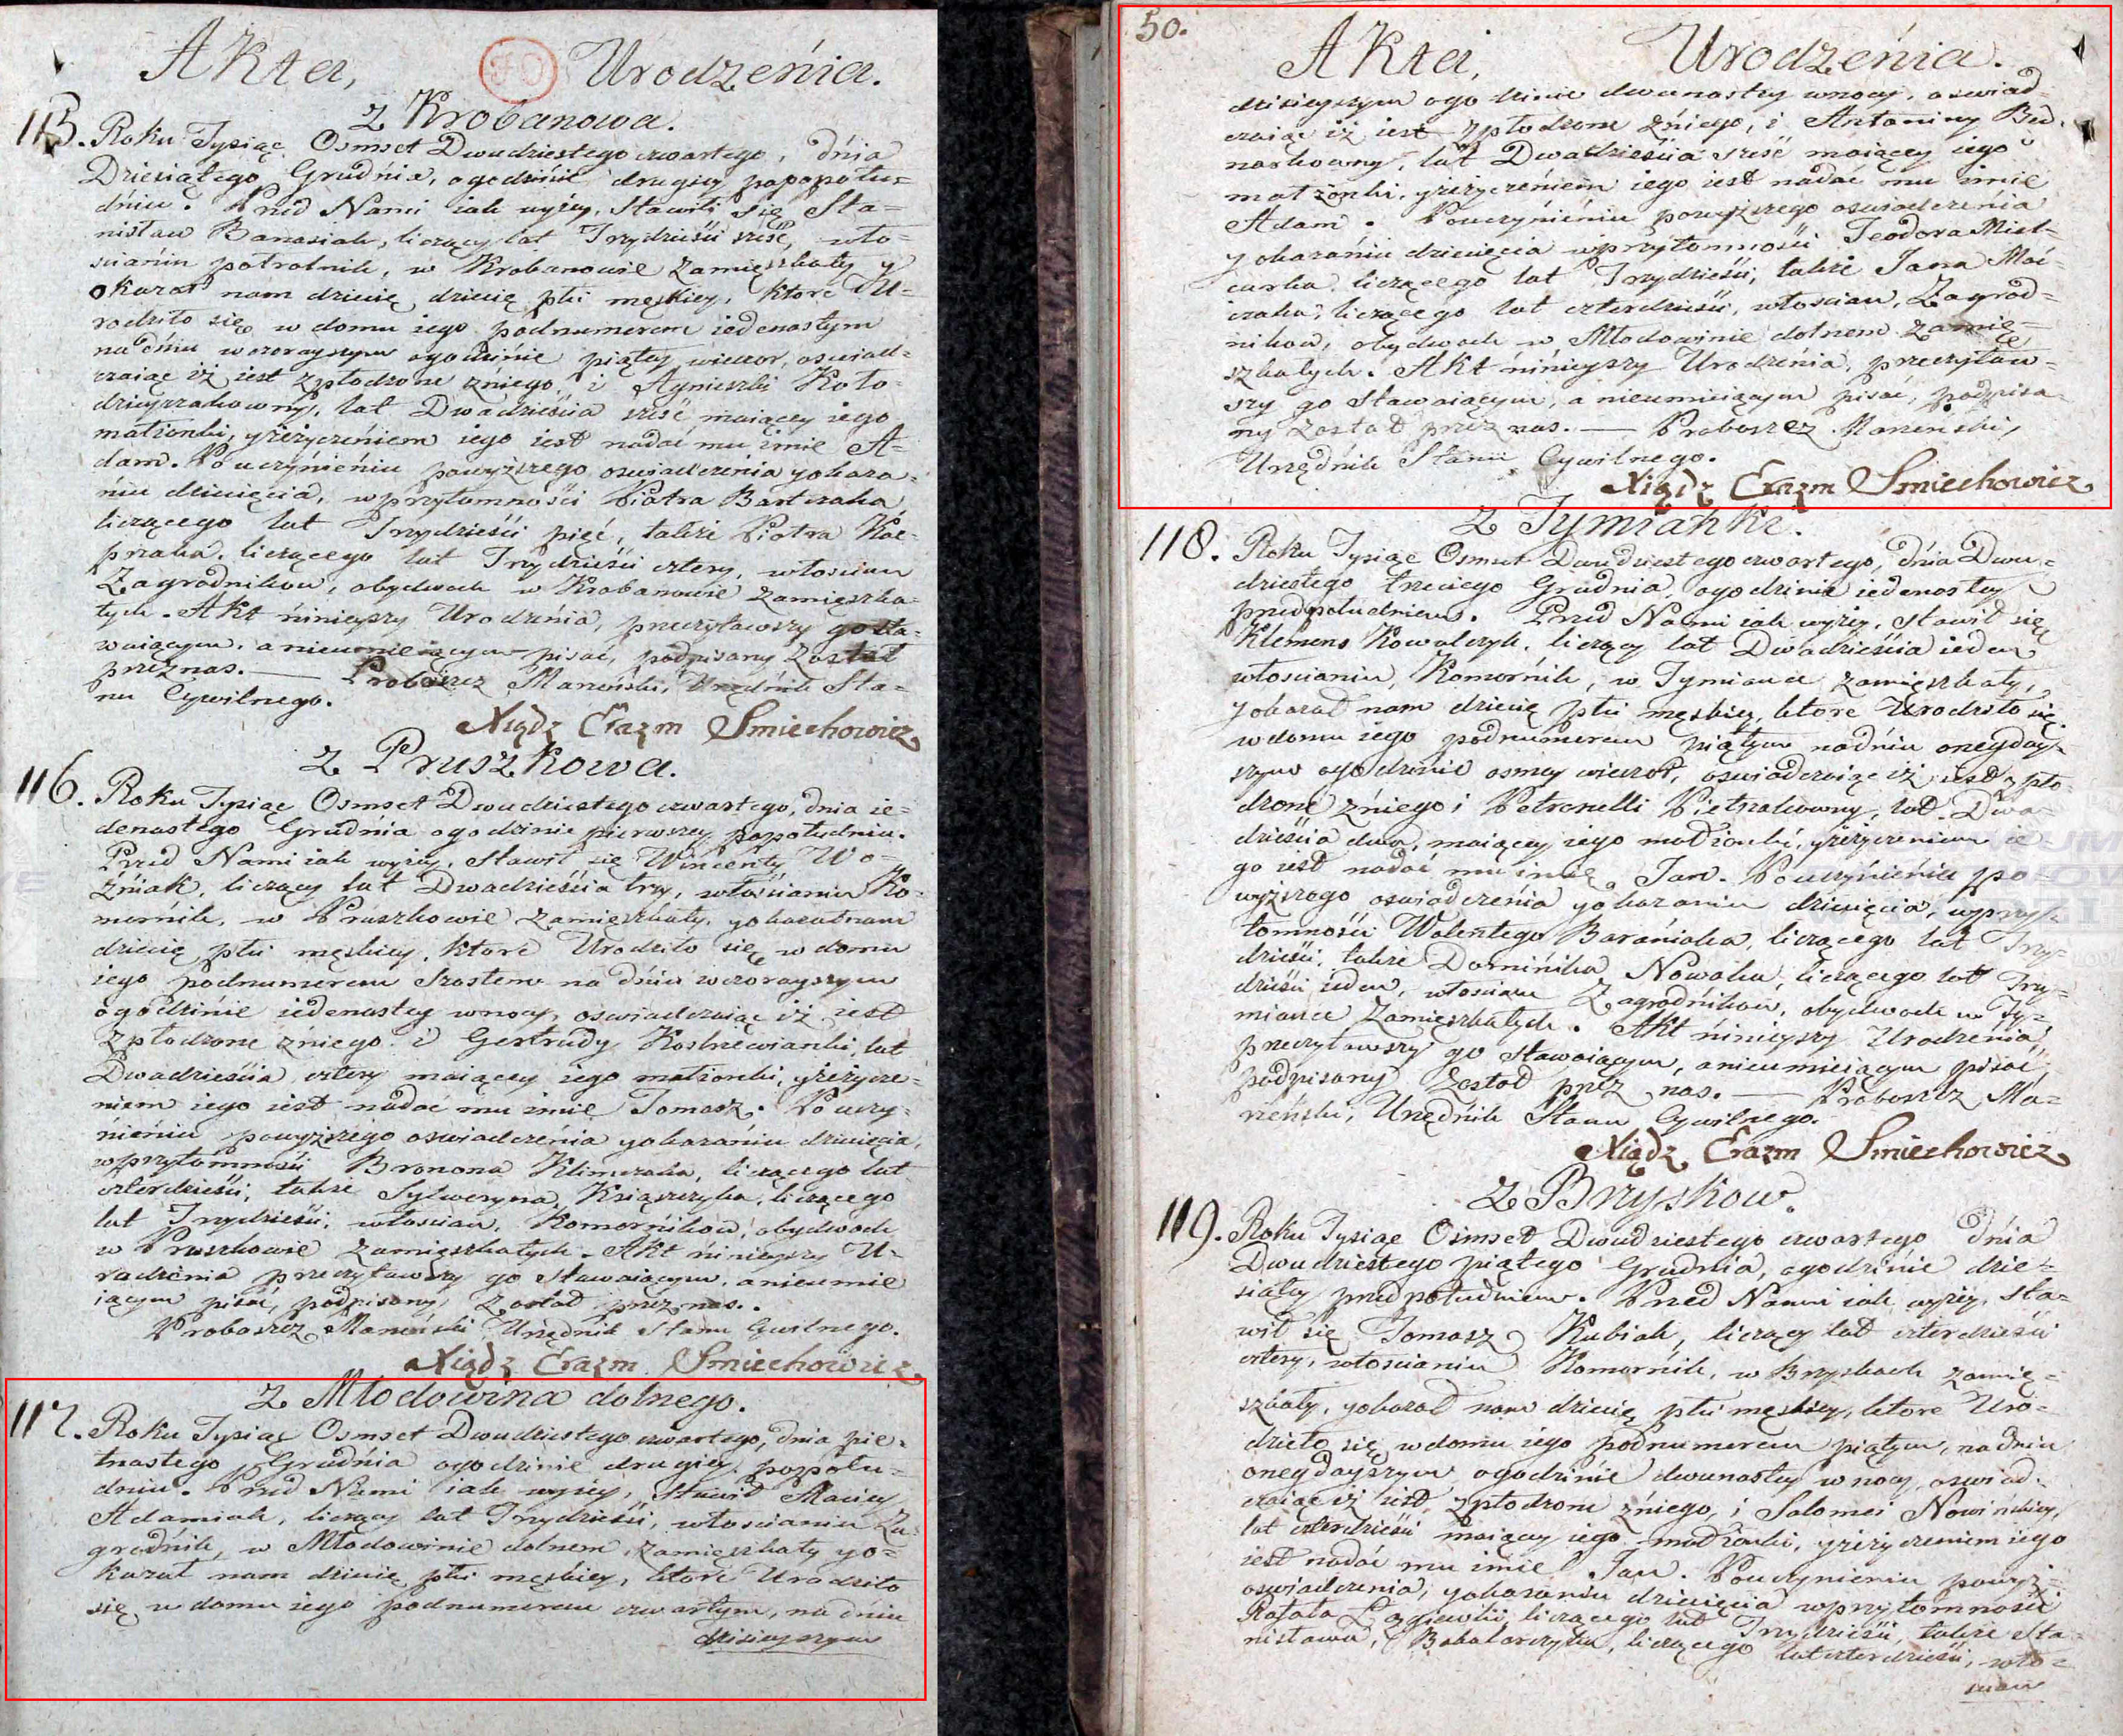 Akta, Urodzeńia.
z Krobanowa.
115. Roku Tysiąc Osmset Dwudziestego czwartego, dńia
Dziesiątego Grudńia, ogodzińie drugiey popopołu=
dńiu. Przed Nami iak wyżey, Stawili się Sta=
nisław Banasiak, liczący lat Trzydzieści sześć, wło=
ścianin połrolnik, w Krobanowie Zamięszkały y
okazał nam dziecię dziecię płci męskiey, ktore U=
rodziło się w domu iego podnumerem iedenastym
na dńiu wczorayszym ogodzińie piątey wieczor, oswiad=
czaiąc iż iest zpłodzone zńiego, i Agnieszki Koło=
dzieyczakowny, lat Dwadzieścia sześć maiącey iego
małżonki, yżeżyczeńiem iego iest nadać mu imie A=
dam. Po uczyńieńiu powyższego oswiadczeńia yokaza=
ńiu dziecięcia, wprzytomności Piotra Bartczaka
liczącego lat Trzydzieści pięć, także Piotra Kac=
przaka, liczącego lat Trzydzieści cztery, włościan
Zagrodnikow, obydwoch w Krobanowie Zamięszka=
łych. Akt ńinieyszy Urodzeńia, przeczytawszy gosta=
waiącym, anieumieiącym pisać, podpisany Został
przeznas. — Proboszcz Marzeński, Urzędńik Sta=
nu Cywilnego.
Xiądz Erazm Smiechowicz
z Pruszkowa.
116. Roku Tysiąc Osmset Dwudziestego czwartego, dnia ie=
denastego Grudńia ogodzinie pierwszey popołudniu.
Przed Nami iak wyżey, Stawił się Wincenty Wo=
źńiak, liczący lat Dwadzieścia trzy, włościanin Ko=
mornik, w Pruszkowie Zamięszkały, yokazałnam
dziecię płci męskiey, ktore Urodziło się w domu
iego podnumerem Szostem na dńiu wczorayszym
ogodzińie iedenastey wnocy, oswiadczaiąc iż iest
Zpłodzone zńiego i Gertrudy Kostrzewianki, lat
Dwadzieścia cztery maiącey iego małżonki, yżeżycze=
niem iego iest nadać mu imie Tomasz. Po uczy=
ńieńiu powyższego oswiadczeńia yokazańiu dziecięcia,
wprzytomności Brunona Klimczaka, liczącego lat
czterdzieści, także Sylwestyna Książczyka, liczącego
lat Trzydzieści, włościan, Komornikow, obydwoch
w Pruszkowie Zamięszkałych. Akt ńinieyszy U=
rodzenia przeczytawszy go stawaiącym, anieumie
iącym pisać, podpisany Został przeznas.
Proboszcz Marzeński Urzędnik Stanu Cywilnego.
Xiądz Erazm Smiechowicz
z Młodowina dolnego.
117. Roku Tysiąc Osmset Dwudziestego czwartego, dnia pię=
tnastego Grudńia ogodzinie drugiey popołu=
dńiu. Przed Nami iak wyżey, Stawił Maciey
Adamiak, liczący lat Trzydzieści, włościanin Za=
grodńik, w Młodowinie dolnem Zamięszkały yo=
kazał nam dziecię płci męskiey, ktore Urodziło
się w domu iego podnumerem czwartym, na dńiu
dzisieyszym
50.
Akta, Urodzeńia.
dzisieyszym ogodzinie dwunastey wnocy, oswiad=
czaiąc iż iest zpłodzone zńiego, i Antoniny Bed=
narkowny, lat Dwadzieścia sześć maiącey iego
małżonki, yżeżyczeńiem iego iest nadać mu imie
Adam. Pouczyńieńiu powyższego oswiadczeńia
yokazańiu dziecięcia wprzytomności Teodora Miel=
carka, liczącego lat Trzydzieści, także Jana Mać=
czaka, liczącego lat czterdzieści, włościan, Zagrod=
nikow, obydwoch w Młodowinie dolnem Zamię=
szkałych. Akt ńinieyszy Urodzeńia, przeczytaw=
szy go Stawaiącym, a nieumieiącym pisać, podpisa=
ny Został przez nas. — Proboszcz Marzeński,
Urzędnik Stanu Cywilnego.
Xiądz Erazm Smiechowicz
z Tymianki.
118. Roku Tysiąc Osmset Dwudziestego czwartego, dńia Dwu=
dziestego trzeciego Grudńia, ogodzinie iedenastey
przedpołudniem. Przed Nami iak wyżey, stawił się
Klemens Kowalczyk, liczący lat Dwadzieścia ieden
włościanin, Komorńik, w Tymiance Zamięszkały,
yokazał nam dziecię płci męskiey, ktore Urodziło się
wdomu iego podnumerem piątym nadńiu oneyday=
szym ogodzinie osmey wieczor, oswiadczaiąc iż iest zpło
dzone zńiego i Petronelli Pietrzakowny, lat Dwa=
dzieścia dwa, maiącey iego małżonki, yżeżyczeniem ie
go iest nadać mu imie Jan. Pouczyńieńiu po=
wyższego oswiadczeńia yokazaniu dziecięcia, wprzy=
tomności Walentego Barańiaka, liczącego lat Trzy=
dzieści, także Domińika Nowaka, liczącego lat Trzy=
dzieści ieden, włościan Zagrodńikow, obydwoch w Ty=
miance Zamięszkałych. Akt ńinieyszy Urodzenia,
przeczytawszy go stawaiącym, anieumieiącym pisać,
podpisany Został przez nas. — Proboszcz Ma=
rzeński, Urzędńik Stanu Cywilnego.
Xiądz Erazm Smiechowicz
z Bryskow.
119. Roku Tysiąc Ośmset Dwudziestego czwartego dńia
Dwudziestego piątego Grudnia, ogodzinie dzie=
siątey przedpołudniem. Przed Nami iak wyżey, sta=
wił się Tomasz Kubiak, liczący lat czterdzieści
cztery, włościanin Komorńik, w Bryskach zamię=
szkały, yokazał nam dziecię płci męskiey, ktore Uro=
dziło się, wdomu iego podnumerem piątym, nadniu
oneydayszym ogodzińie dwunastey w nocy, oswiad=
czaiąc iż iest, zpłodzone zńiego, i Salomei Nowinskiey,
lat czterdzieści maiącey iego małżonki, yżeżyczeniem iego
iest nadać mu imie Jan. Pouczynieniu powyż=
oswiadczenia, yokazaniu dziecięcia wprzytomności
Rafała liczącego lat Trzydzieści, także Sta
nisława, Bakalarczyka, liczącego lat czterdzieści, wło=
scian